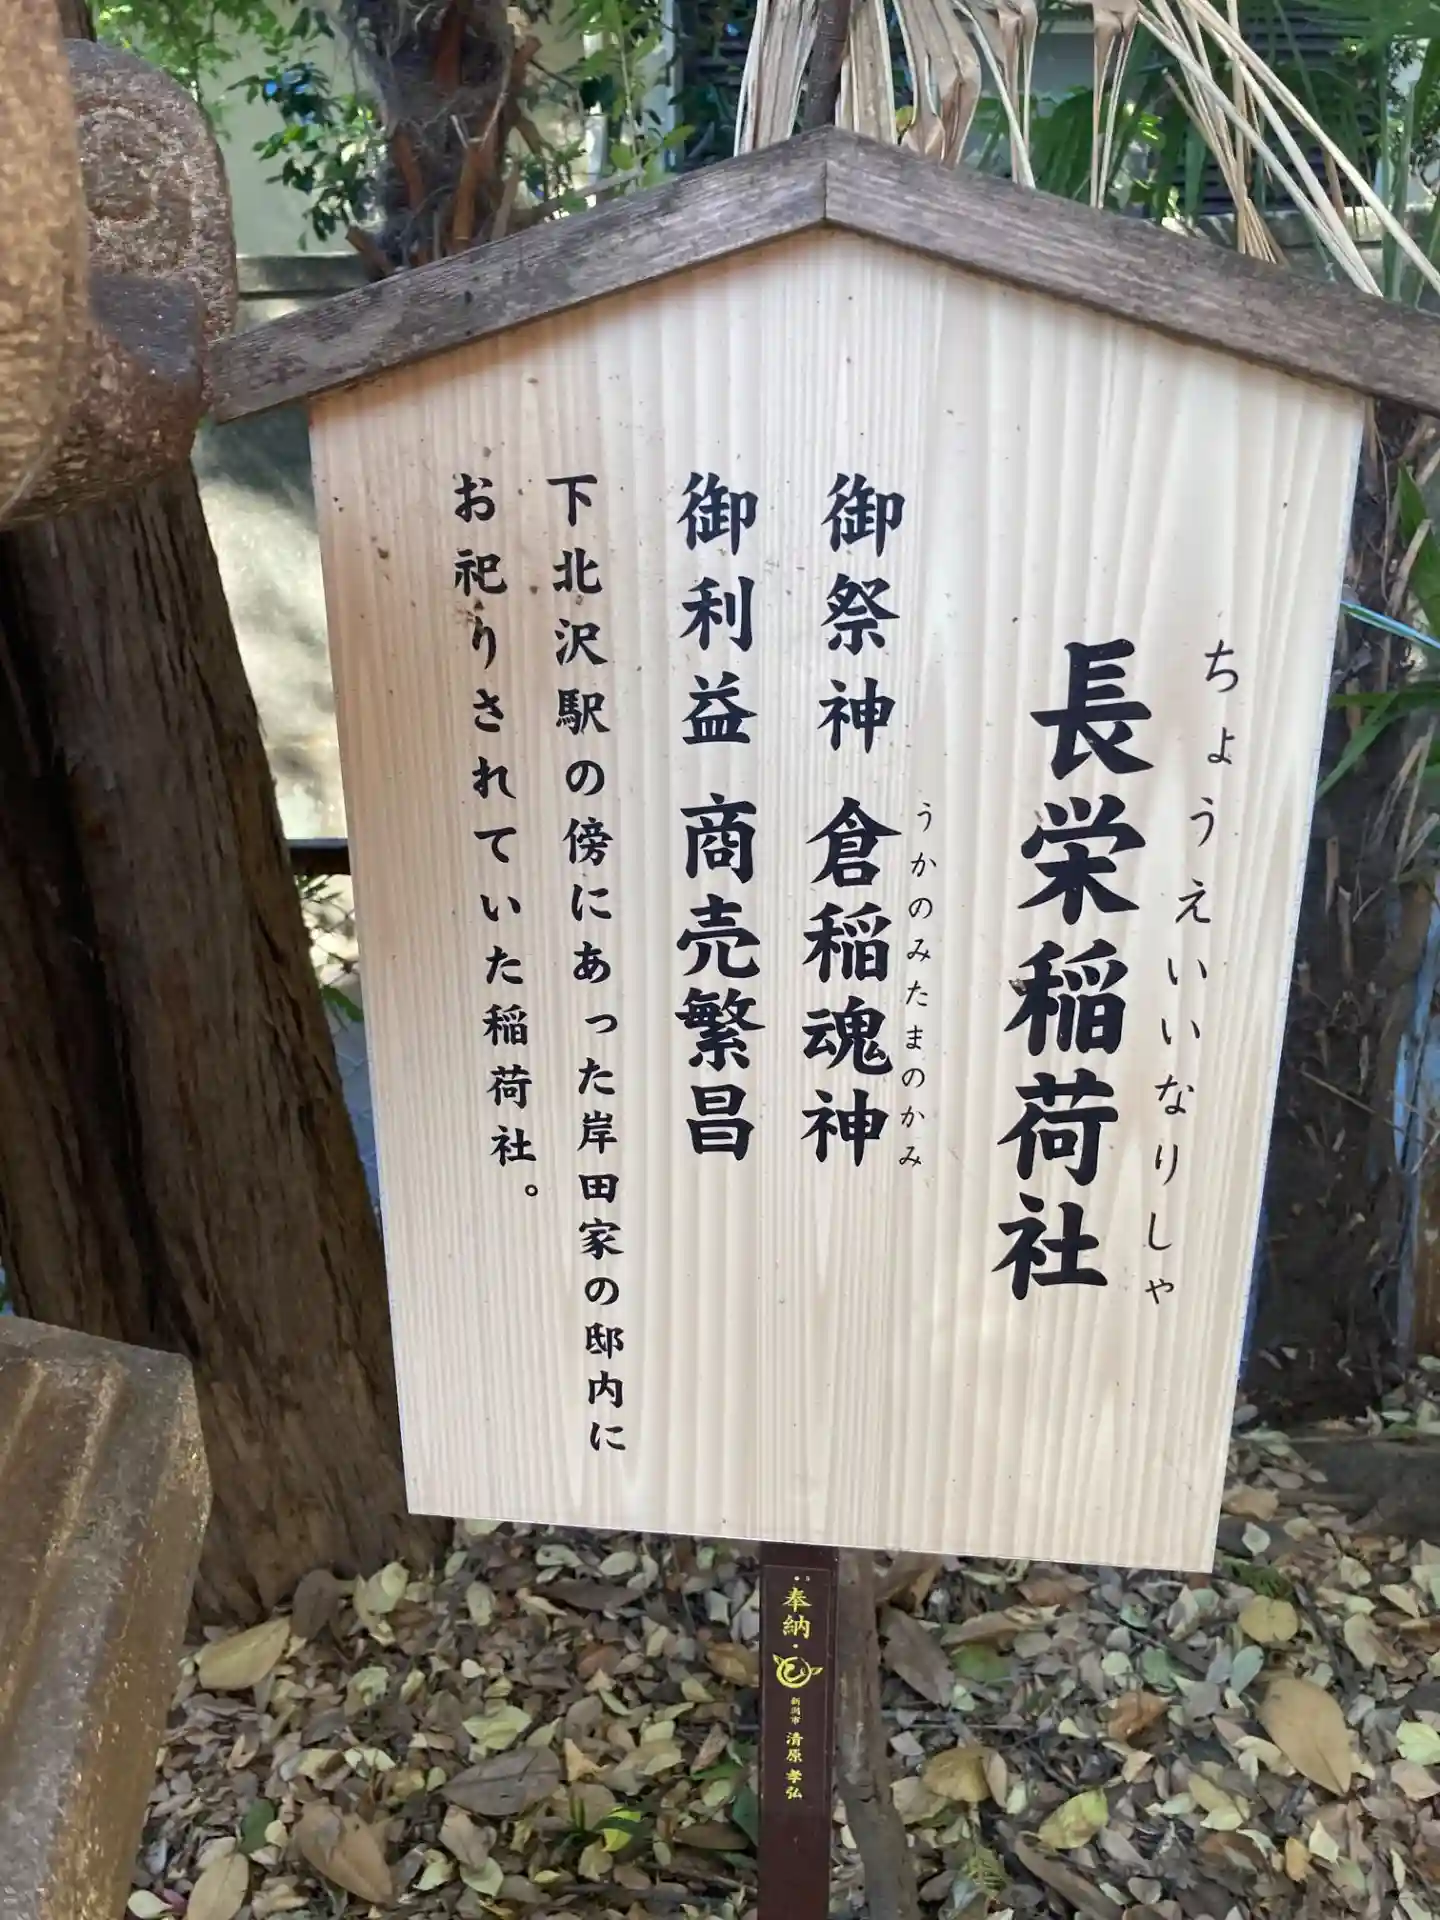 ちょうえいいなりしゃ
長栄稲荷社
うかのみたまのかみ
御祭神 倉稲魂神
御利益 商売繁昌
下北沢駅の傍にあった岸田家の邸内に
お祀りされていた稲荷社。
奉納
新潟市 清原 孝弘